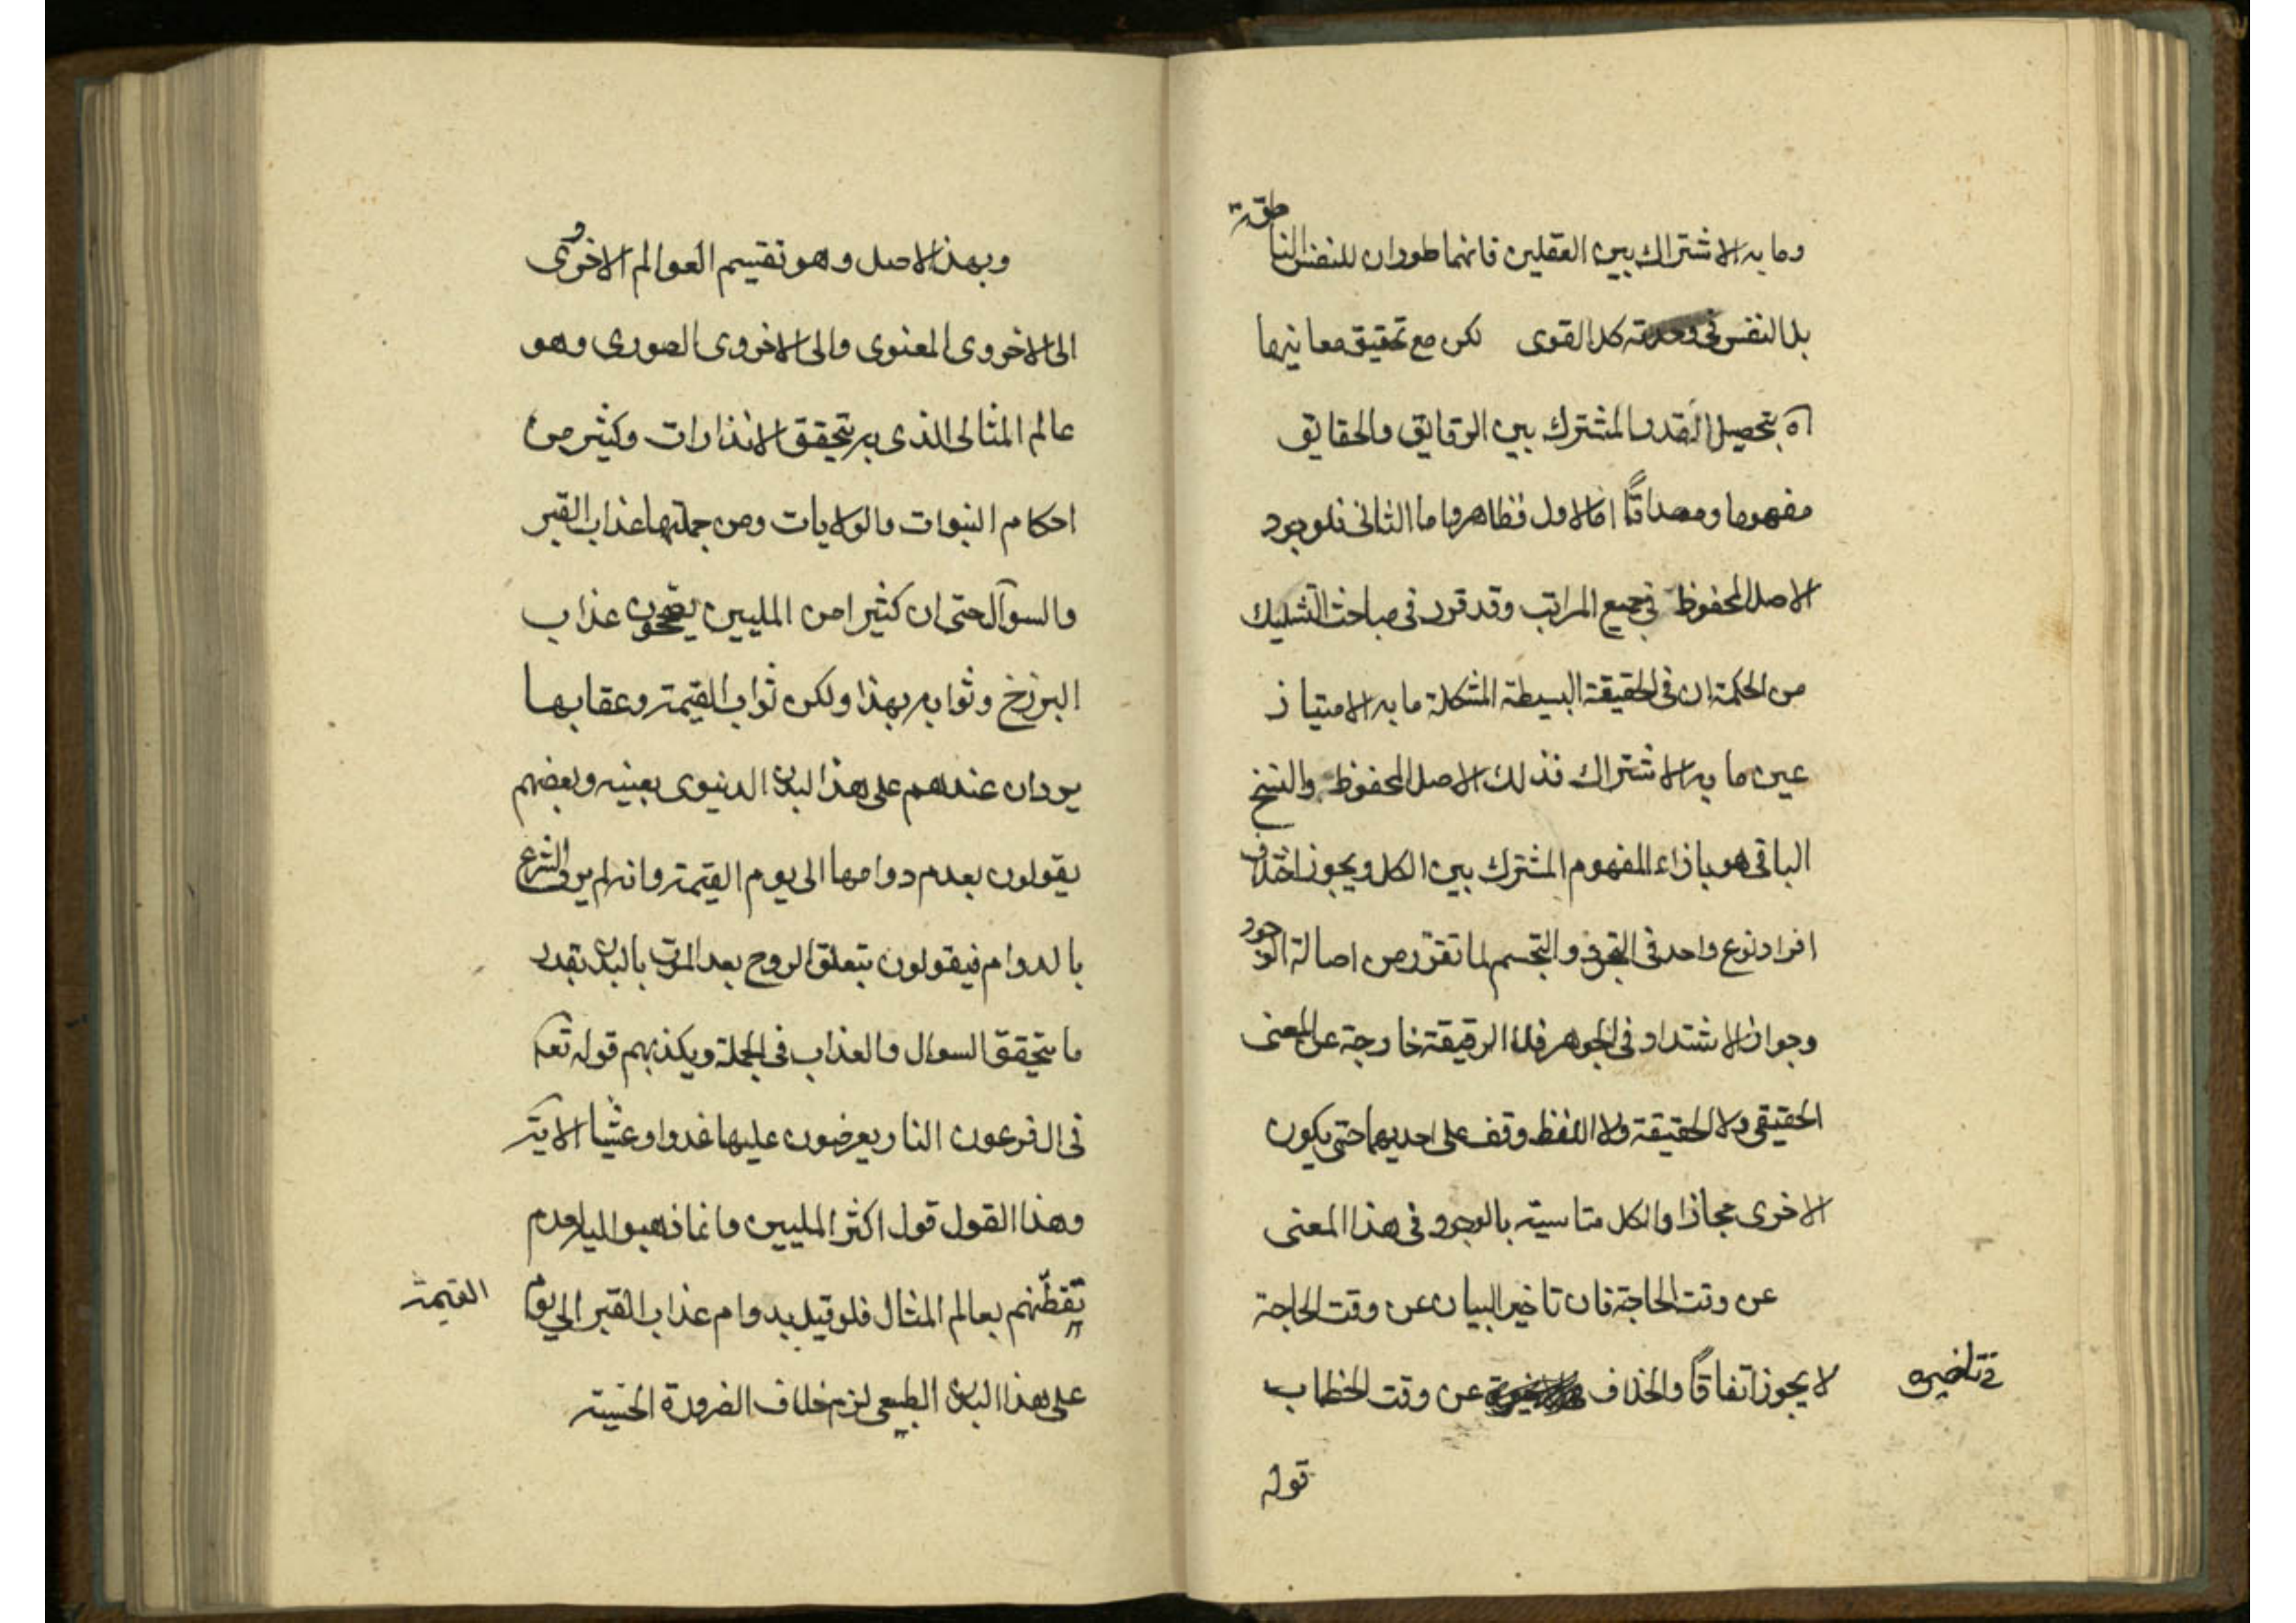 وما به الاشتراك بين العقلين فانهما طوران للنفس الناطقة
بل النفس فى وحدته كل القوى لكن مع تحقيق معانيها
اه بتحصيل القدر المشترك بين الرقايق والحقايق
مفهوما ومصداقًا اما الاول فظاهر واما الثانى فلوجود
الاصل المحفوظ فى جميع المراتب وقد قرر فى مباحث التشكيك
من الحكمة ان فى الحقيقة البسيطة المشككة ما به الامتياز
عين ما به الاشتراك فذلك الاصل المحفوظ والسنخ
الباقى هو بازاء المفهوم المشترك بين الكل ويجوز اختلاف
افراد نوع واحد فى التجرد والتجسم لما تقرّر من اصالة الوجود
وجواز الاشتداد فى الجوهر فلا الرقيقة خارجة عن المعنى
الحقيقى ولا الحقيقة ولا اللفظ وقف على احديهما حتى يكون
الاخرى مجازا والكل متاسية بالوجود فى هذا المعنى
عن وقت الحاجة فان تاخير البيان عن وقت الحاجة
لا يجوز اتفاقًا والخلاف عن وقت الخطاب
فى تاخيره
قوله
وبهذا الاصل وهو تقسيم العوالم الاخروى
الى الاخروى المعنوى والى الاخروى الصورى وهو
عالم المثالى الذى به يتحقق الانذارات وكثير من
احكام النبوات والولايات ومن جملتها عذاب القبر
والسوآل حتى ان كثيرا من المليين يصححون عذاب
البرزخ وثوابه بهذا ولكن ثواب القيمة وعقابها
يردان عندهم على هذا البدن الدنيوى بعينه وبعضهم
يقولون بعدم دوامها الى يوم القيمة وانه لم يرد فى الشرع
بالدوام فيقولون بتعلق الروح بعد الموت بالبدن بقدر
ما يتحقق السوال والعذاب فى الجملة ويكذبهم قوله تعه
فى ال فرعون النار يعرضون عليها غدوا وعشيا الاية
وهذا القول قول اكثر المليين وانما ذهبوا اليه لعدم
تفطّنهم بعالم المثال فلو قيل بدوام عذاب القبر الى يوم القيمة
على هذا البدن الطبيعى لزم خلاف الضرورة الحسية